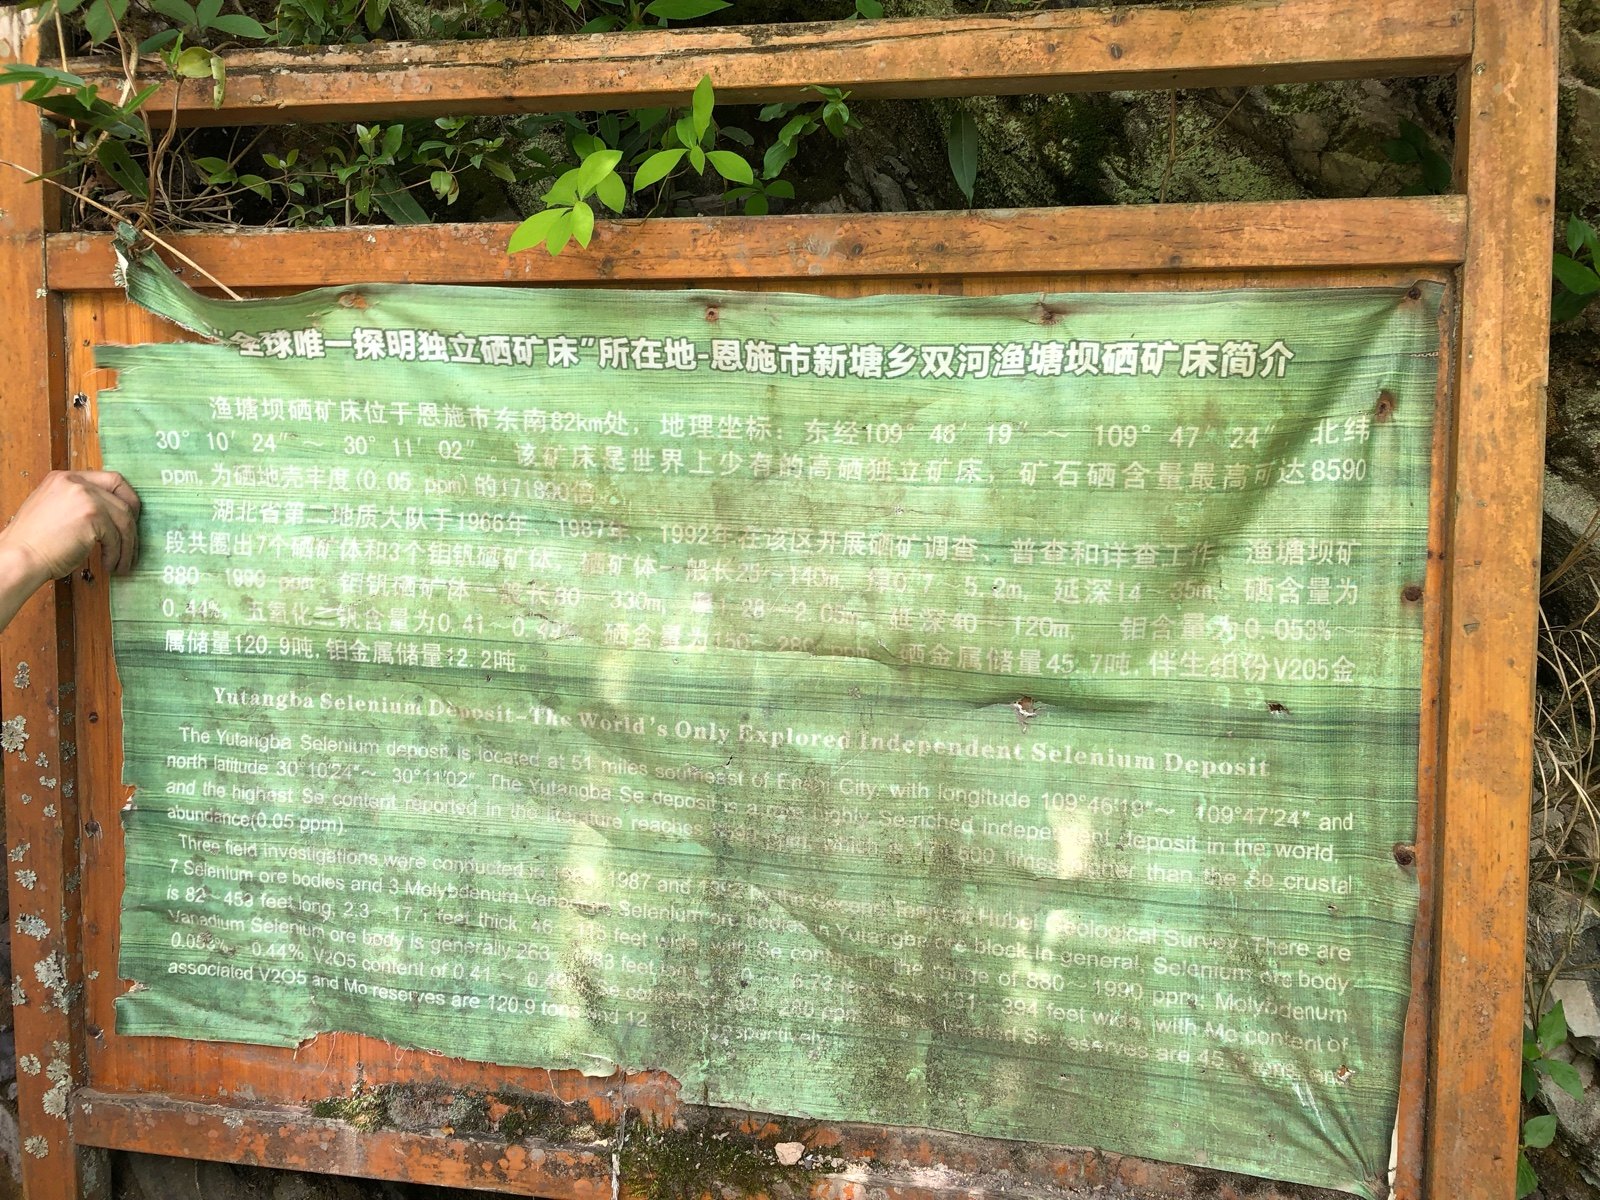 “全球唯一探明独立硒矿床”所在地-恩施市新塘乡双河渔塘坝硒矿床简介
渔塘坝硒矿床位于恩施市东南82km处，地理坐标：东经109° 46′ 19″ ～ 109° 47′ 24″ 北纬
30° 10′ 24″ ～ 30° 11′ 02″。该矿床是世界上少有的高硒独立矿床，矿石硒含量最高可达8590
ppm,为硒地壳丰度(0.05 ppm)的171800倍。
湖北省第二地质大队于1966年、1987年、1992年在该区开展硒矿调查、普查和详查工作 渔塘坝矿
段共圈出7个硒矿体和3个钼钒硒矿体。硒矿体一般长25～140m, 厚0.7～5.2m, 延深14～35m, 硒含量为
880～1990 ppm, 钼钒硒矿体一般长80 330m, 延深40～120m, 钼含量为0.053%～
0.44%, 五氧化二钒含量为0.41～ 硒含量为150～280 ppm 硒金属储量45.7吨,伴生组份V2O5金
属储量120.9吨,钼金属储量12.2吨。
Yutangba Selenium Deposit-The World's Only Explored Independent Selenium Deposit
The Yutangba Selenium deposit is located at 51 miles southeast of Enshi City, with longitude 109°46′19″～ 109°47′24″ and
north latitude 30°10′24″～ 30°11′02″. The Yutangba Se deposit is a rare highly Se-riched independent deposit in the world,
and the highest Se content reported in the literature reaches which is 171 800 times higher than the Se crustal
abundance(0.05 ppm).
Three field investigations were conducted in 1987 and 1992 by the Second Team of Hubei Geological Survey. There are
7 Selenium ore bodies and 3 Molybdenum Vanadium Selenium ore bodies in Yutangba ore block. In general, Selenium ore body
is 82～453 feet long, 2.3～17.1 feet thick, 46 feet wide, with Se content in the range of 880～1990 ppm; Molybdenum
Vanadium Selenium ore body is generally 263 feet long, 6.73 feet thick, 131～394 feet wide, with Mo content of
0.053%～0.44%, V2O5 content of 0.41～ Se content of 150～280 ppm. Se reserves are 45.7 tons, and
associated V2O5 and Mo reserves are 120.9 tons and 12 tons, respectively.